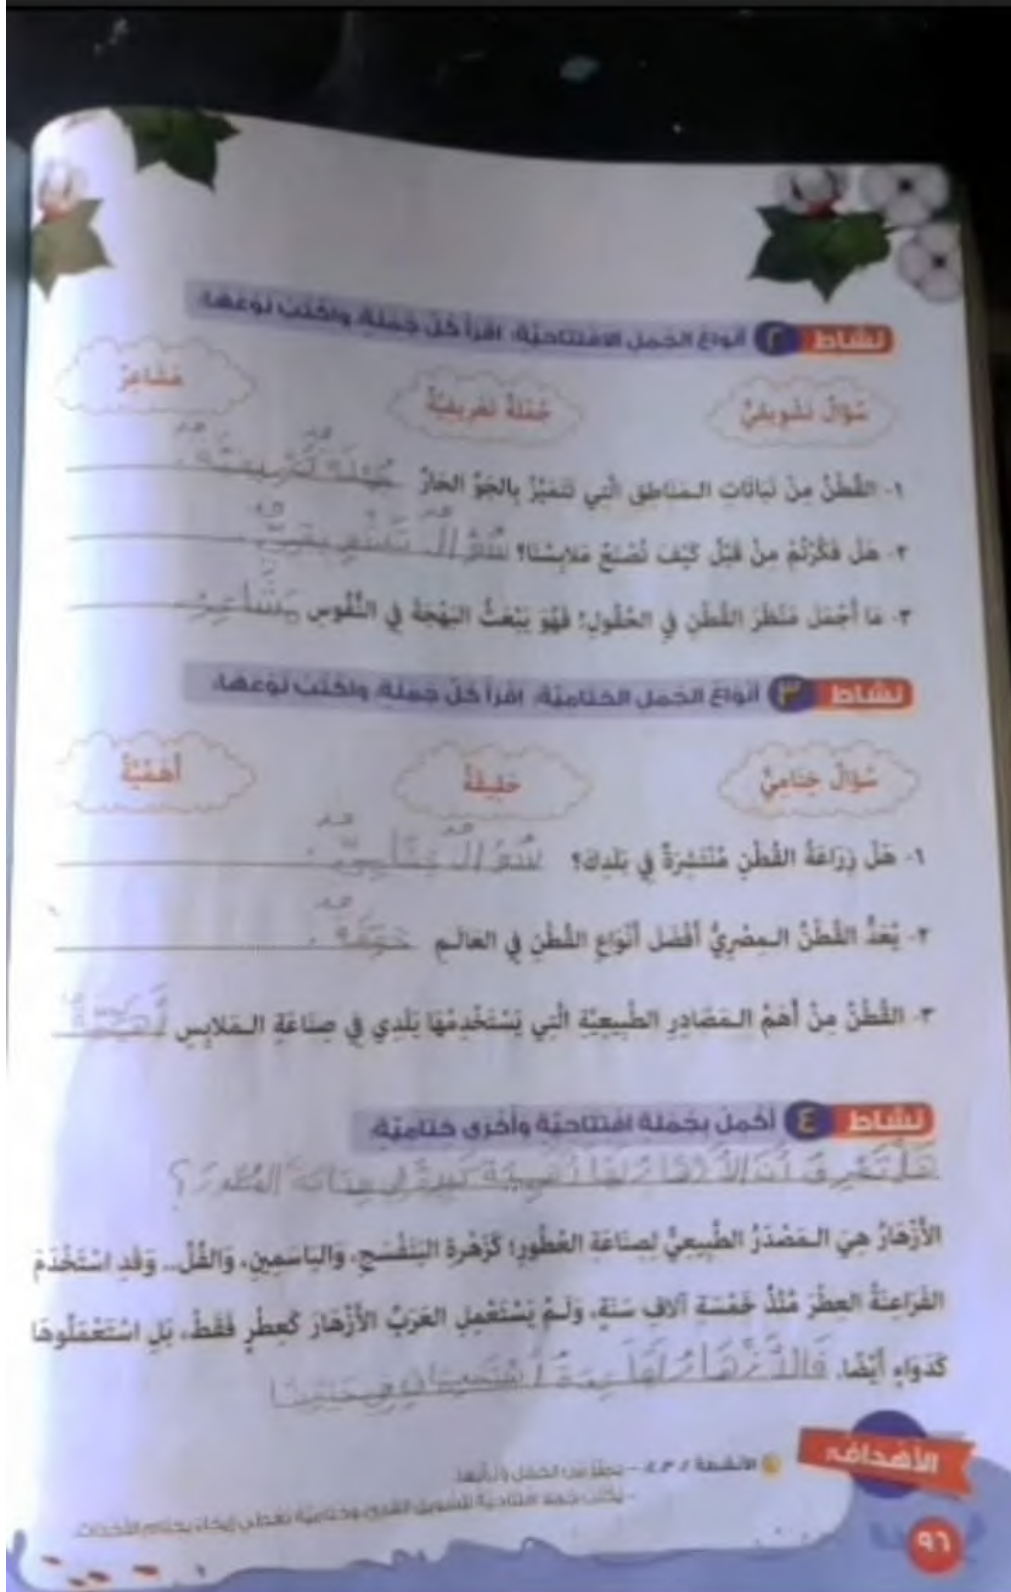 نشاط ٢ أنواع الجمل الافتتاحية: اقرأ كل جملة، واكتب نوعها:
سُؤَالٌ تَشْوِيقِيٌّ
جُمْلَةٌ تَعْرِيفِيَّةٌ
مَشَاعِرُ
١- القُطْنُ مِنْ نَبَاتَاتِ الـمَنَاطِقِ الَّتِي تَتَمَيَّزُ بِالجَوِّ الحَارِّ جُمْلَة تَعْرِيفِيَّة.
٢- هَلْ فَكَّرْتُمْ مِنْ قَبْلُ كَيْفَ تُصْنَعُ مَلَابِسُنَا؟ سُؤَالٌ تَشْوِيقِيٌّ.
٣- مَا أَجْمَلَ مَنْظَرَ القُطْنِ فِي الحُقُولِ؛ فَهُوَ يَبْعَثُ البَهْجَةَ فِي النُّفُوسِ مَشَاعِرُ
نشاط ٣ أنواع الجمل الختامية: اقرأ كل جملة، واكتب نوعها:
سُؤَالٌ خِتَامِيٌّ
حَقِيقَةٌ
أَهَمِّيَّةٌ
١- هَلْ زِرَاعَةُ القُطْنِ مُنْتَشِرَةٌ فِي بَلَدِكَ؟ سُؤَالٌ خِتَامِيٌّ.
٢- يُعَدُّ القُطْنُ الـمِصْرِيُّ أَفْضَلَ أَنْوَاعِ القُطْنِ فِي العَالَـمِ حَقِيقَة.
٣- القُطْنُ مِنْ أَهَمِّ الـمَصَادِرِ الطَّبِيعِيَّةِ الَّتِي يَسْتَخْدِمُهَا بَلَدِي فِي صِنَاعَةِ الـمَلَابِسِ أَهَمِّيَّةٌ
نشاط ٤ أكمل بجملة افتتاحية وأخرى ختامية:
هَلْ تَعْرِفُ أَنَّ الأَزْهَارَ لَهَا أَهَمِّيَّة كَبِيرَة فِي صِنَاعَة العُطُور؟
الأَزْهَارُ هِيَ الـمَصْدَرُ الطَّبِيعِيُّ لِصِنَاعَةِ العُطُورِ؛ كَزَهْرَةِ البَنَفْسَجِ، وَاليَاسَمِينِ، وَالفُلِّ.. وَقَدِ اسْتَخْدَمَ
الفَرَاعِنَةُ العِطْرَ مُنْذُ خَمْسَةِ آلَافِ سَنَةٍ، وَلَـمْ يَسْتَعْمِلِ العَرَبُ الأَزْهَارَ كَعِطْرٍ فَقَطْ، بَلِ اسْتَعْمَلُوهَا
كَدَوَاءٍ أَيْضًا. فَالأَزْهَارُ لَهَا
الأهداف:
الأنشطة ٢، ٣، ٤ – يميز بين الجمل وأنواعها.
– يكتب جملة افتتاحية لتشويق القارئ وختامية تعطي إيحاء بختام الأحداث.
٩٦